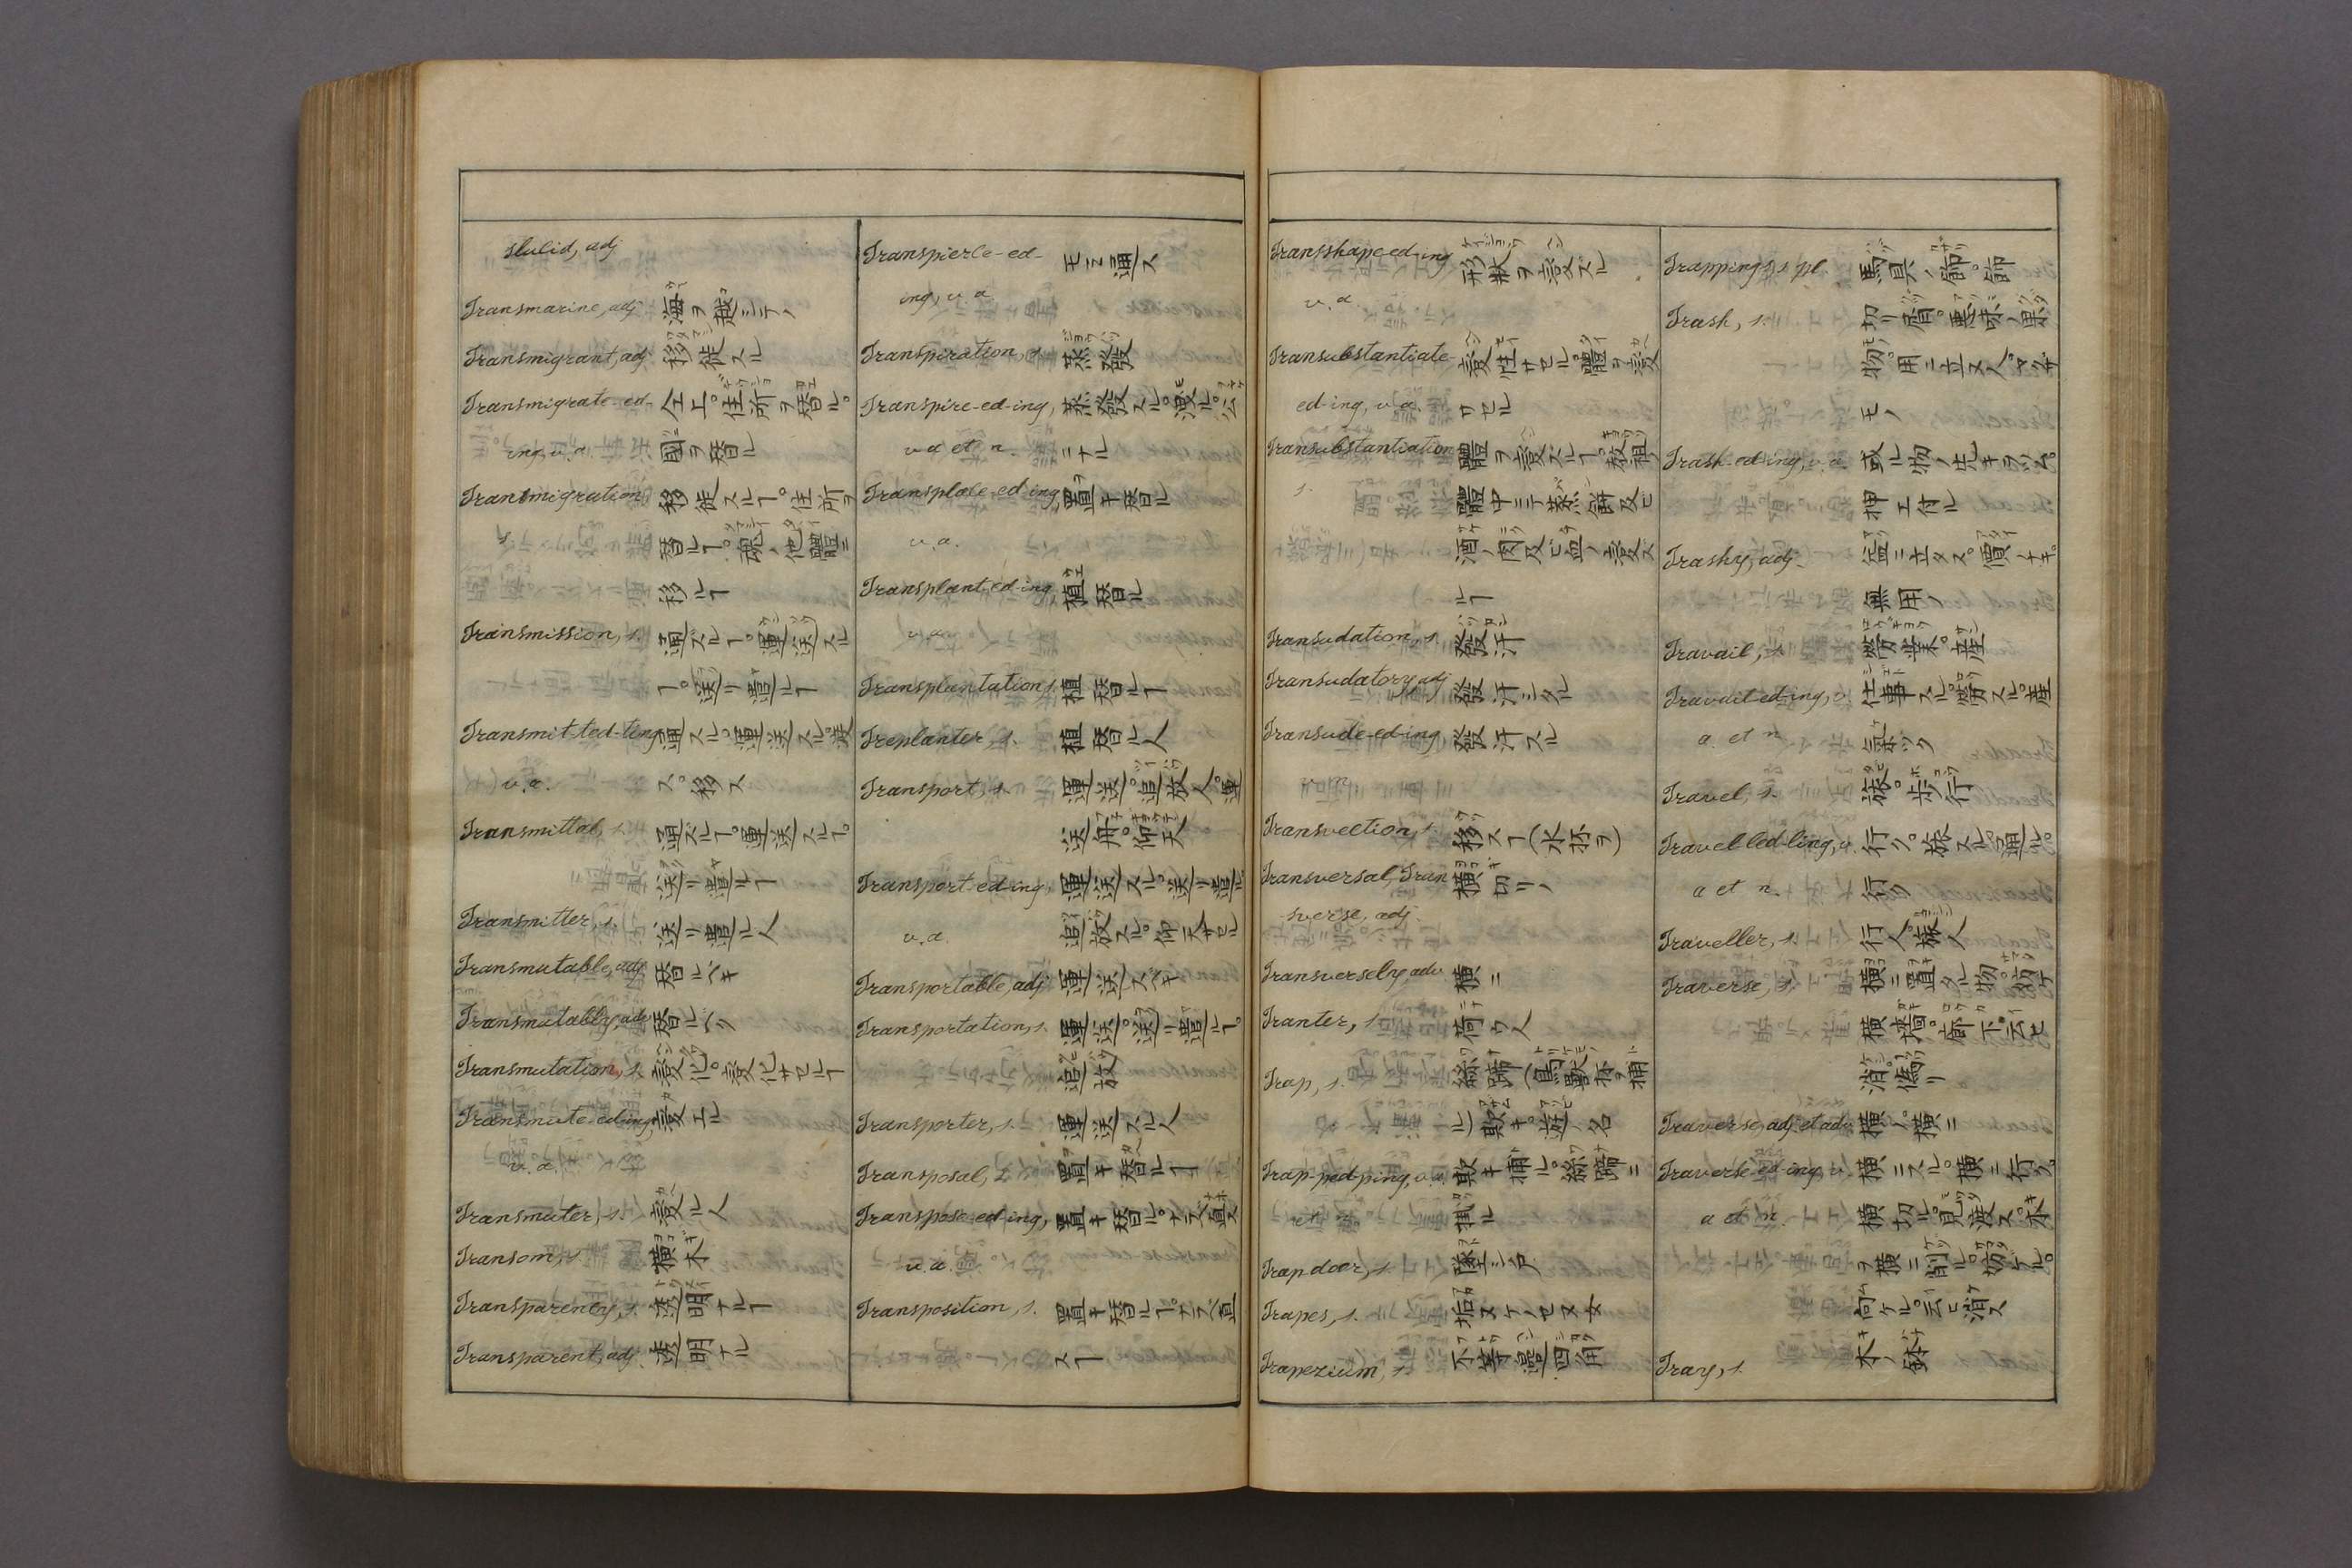 slulid, adj
Transmarine, adj 海ヲ越シテノ
Transmigrant, adj 移徙スル
Transmigrate-ed- 仝上。住所ヲ替ル。
ing, v. a. 國ヲ替ル
Transmigration 移徙スルヿ。住所ヲ
s. 替ルヿ。魂ノ他體ニ
移ルヿ
Transmission, s. 通ズルヿ。運送スル
ヿ。送リ遣ルヿ
Transmit-ted-ting 通スル。運送スル。渡
v. a. ス。移ス
Transmittal, s. 通ズルヿ。運送スルヿ。
送リ遣ルヿ
Transmitter, s. 送リ遣ル人
Transmutable, adj 替ルベキ
Transmutably, adv 替ルベク
Transmutation, s. 変化。変化サセルヿ
Transmute-ed-ing, 変エル
v. a.
Transmuter, s. 変ル人
Transom, s. 横木
Transparency, s. 透明ナルヿ
Transparent, adj 透明ナル
Transpierce-ed- モミ通ス
ing, v. a
Transpiration, s. 蒸發
Transpire-ed-ing, 蒸發スル。洩ル。公
v a et n. ニナル
Transplace-ed-ing 置キ替ル
v. a.
Transplant-ed-ing 植替ル
v. a.
Transplantation s. 植替ルヿ
Treplanter, s. 植替ル人
Transport, s. 運送。追放人。運
送舟。仰天
Transport-ed-ing, 運送スル。送リ遣ル。
v. a. 追放スル。仰天サセル
Transportable, adj 運送スベキ
Transportation, s. 運送。送リ遣ルヿ。
追放
Transporter, s. 運送スル人
Transposal, s. 置キ替ルヿ
Transpose-ed-ing, 置キ替ル。ナラベ直ス
v. a.
Transposition, s. 置キ替ルヿ。ナラベ直
スヿ
Transshape-ed-ing 形状ヲ変ズル
v. a
Transubstantiate- 変性サセル。體ヲ変
ed-ing, v. a. ワセル
Transubstantiation 體ヲ変スルヿ。教祖ノ
s. 體中ニテ蒸餅及ビ
酒ノ肉及ビ血ノ変ス
ルヿ
Transudation, s. 發汗
Transudatory adj 發汗シタル
Transude-ed-ing 發汗スル
v. n.
Transvection, s. 移スヿ(水抔ヲ)
Transversal, Tran 横切リノ
sverse, adj.
Transversely, adv 横ニ
Tranter, s. 荷ウ人
Trap, s. 係蹄(鳥獣抔ヲ捕
ル)欺キ。遊ノ名
Trap-ped-ping, v. a. 欺キ捕ル。係蹄ニ
et n. 掛ル
Trap door, s. 墜シ戸
Trapes, s. 垢ヌケノセヌ女
Trapezium, s. 不等邊四角
Trappings, s. pl. 馬具ノ飾。飾
Trash, s. 切リ屑。悪味ノ果
物。用ニ立ヌ人。マヅキ
モノ
Trash-ed-ing, v. a. 或ル物ノ先キヲツム。
押エ付ル
Trashy, adj. 益ニ立タス。價ノナキ。
無用ノ
Travail, s. 勞業。産
Travail-ed-ing, v. 仕事スル。勞スル。産
a. et n 氣ヅク
Travel, s. 旅。歩行
Travel-led-ling, v. 行ク。旅スル。通ル。
a et n. 行ク
Traveller, s. 行人。旅人
Traverse, s. 横ニ置タル物。妨ケ
横墻。廊下。云ヒ
消。偽リ
Traverse, adj. et adv 横ノ。横ニ
Traverse-ed-ing, v. 横ニスル。横ニ行ク。
a et n. 横切ル。見渡ス。木
ヲ横ニ削ル。妨ケル。
向ケル。云ヒ消ス
Tray, s. 木ノ鉢